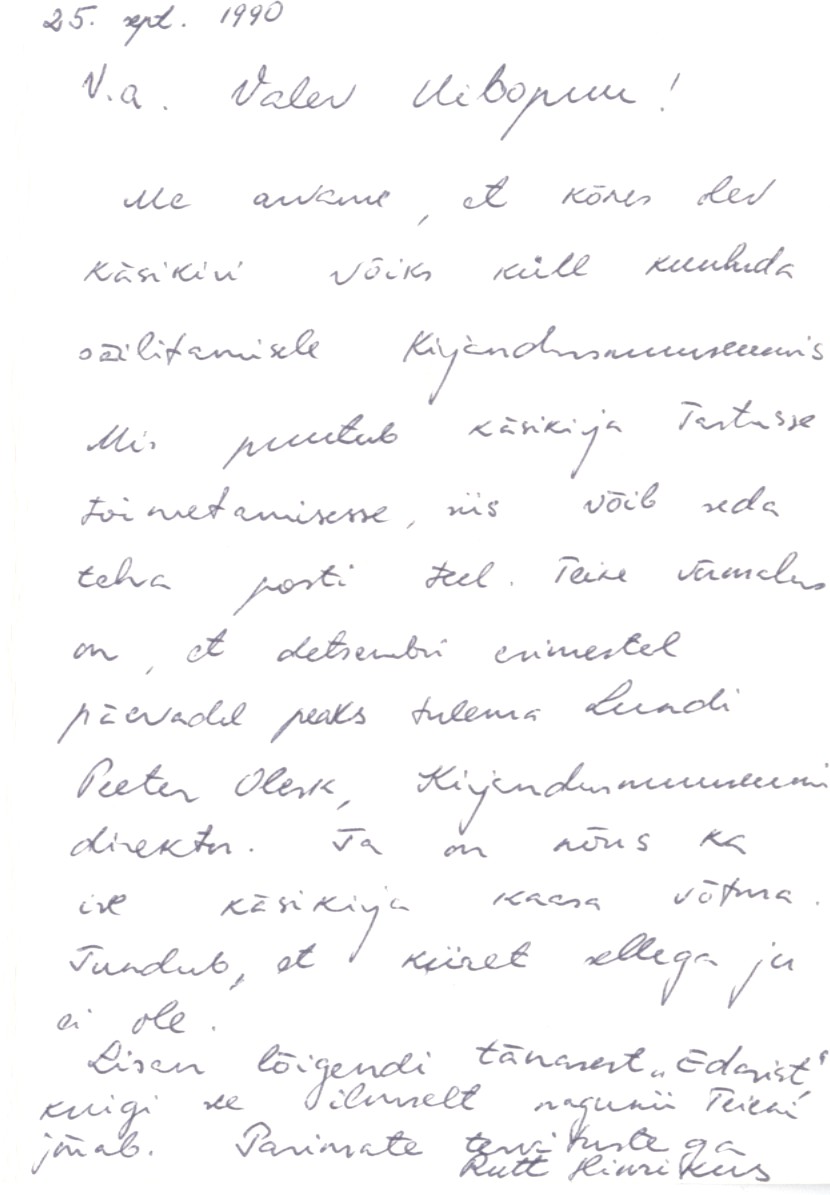 25. sept. 1990
V.a. Valev Uibopuu!
Me arvame, et kõnes olev
käsikiri võiks küll kuuluda
säilitamisele Kirjandusmuuseumis
Mis puutub käsikirja Tartusse
toimetamisesse, siis võib seda
teha posti teel. Teine võimalus
on, et detsembri esimestel
päevadel peaks tulema Lundi
Peeter Olesk, Kirjandusmuuseumi
direktor. Ta on nõus ka
ise käsikirja kaasa võtma.
Tundub, et kiiret sellega ju
ei ole.
Lisan lõigendi tänasest „Edasist"
kuigi see ilmselt nagunii Teieni
jõuab. Parimate tervitustega
Rutt Hinrikus